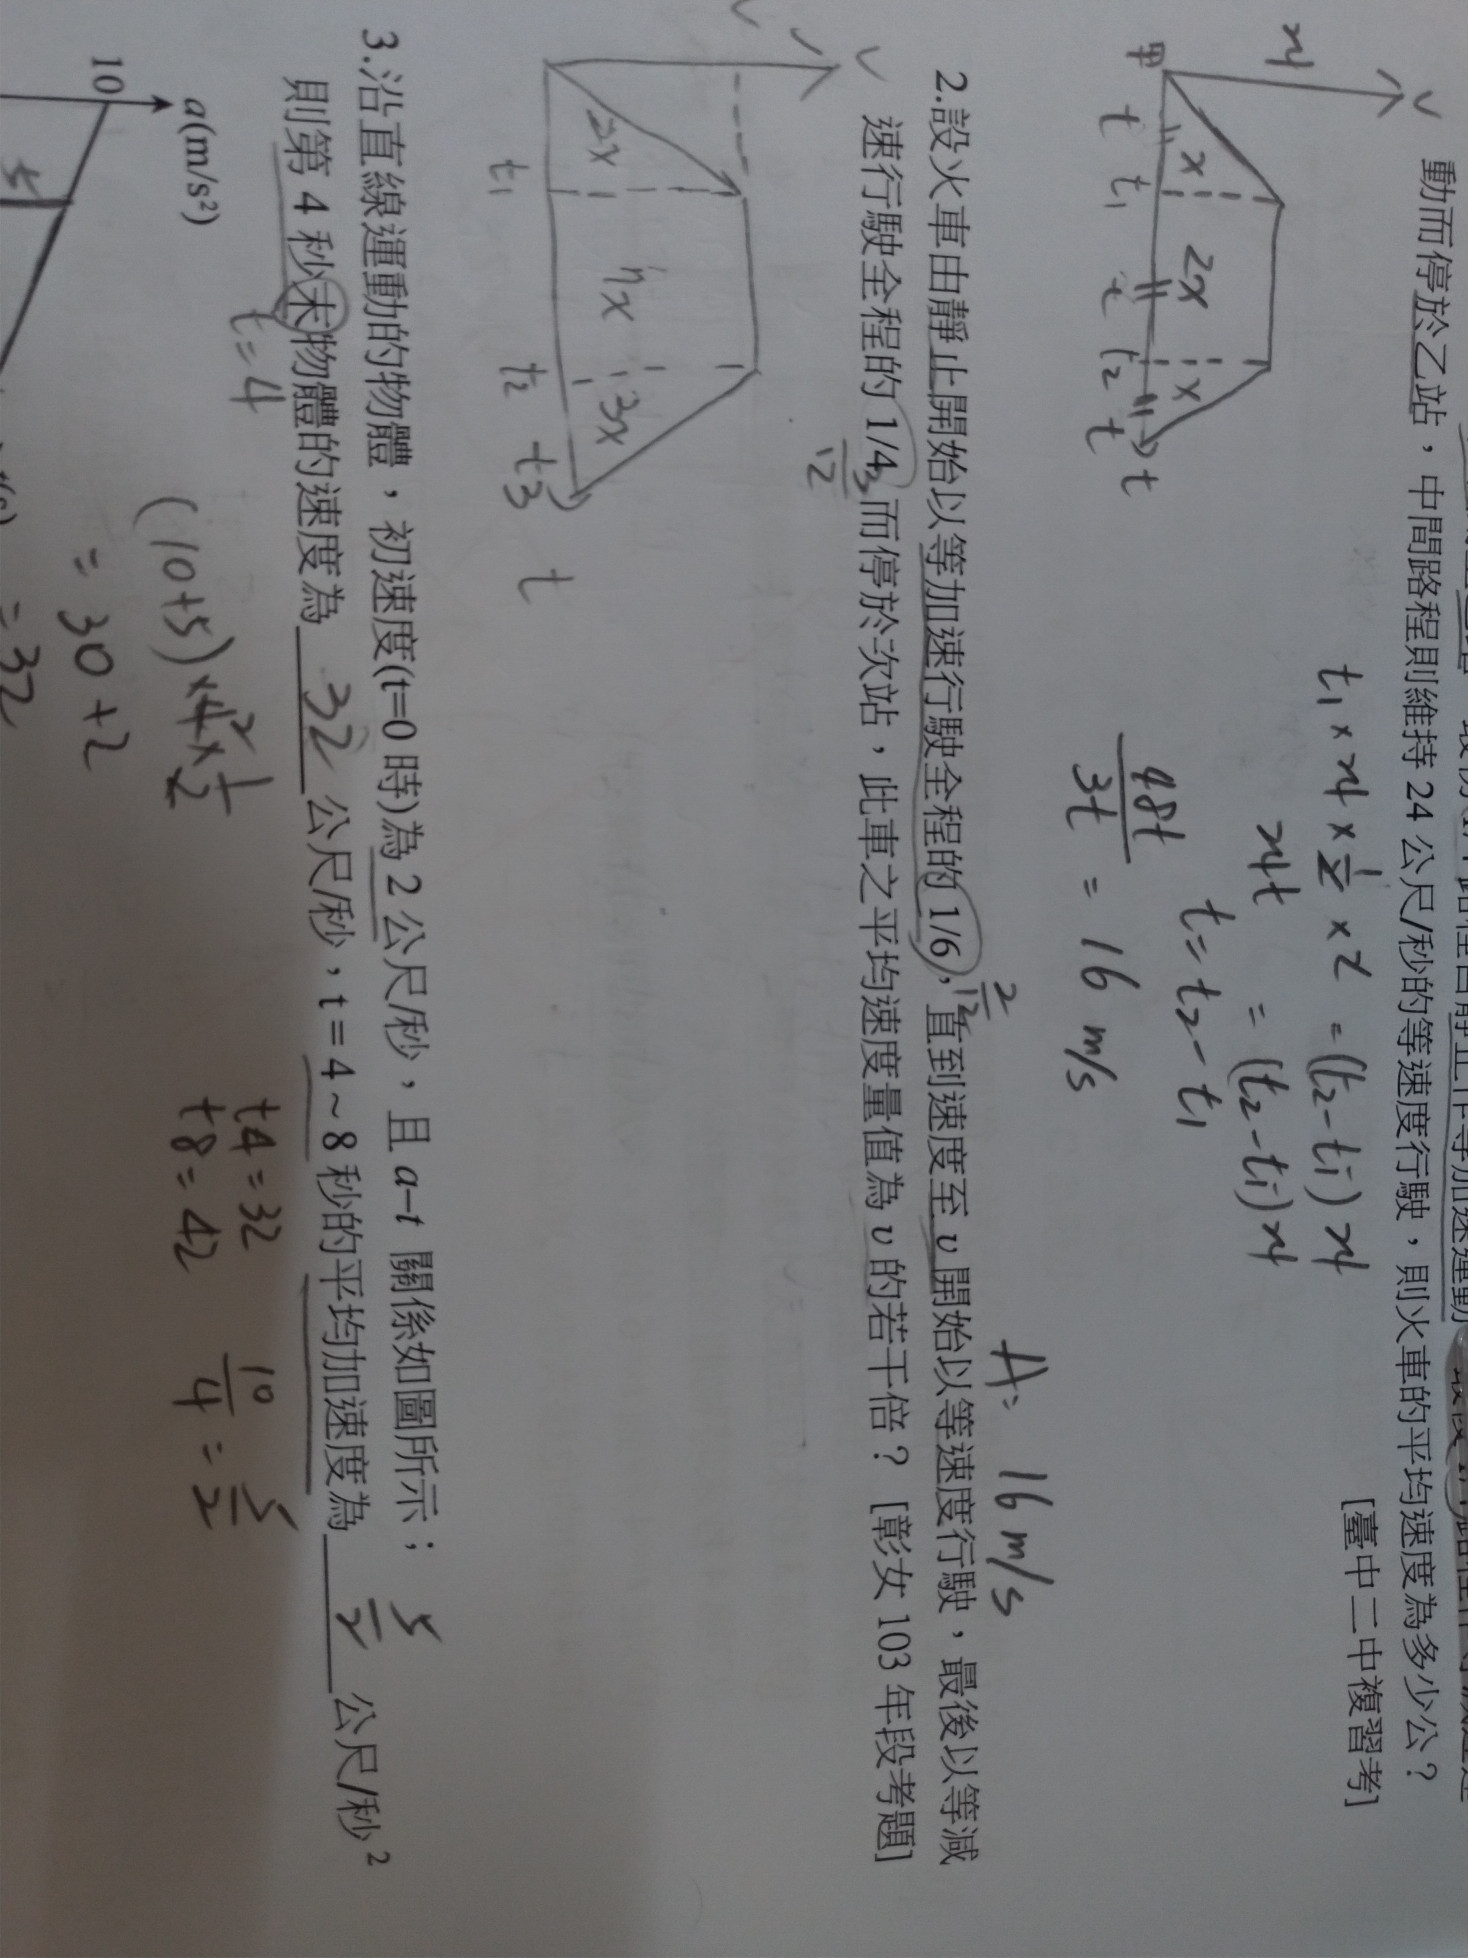 動而停於乙站，中間路程則維持 24 公尺/秒的等速度行駛，則火車的平均速度為多少公？
[臺中二中複習考]
v
24
甲
x
2x
x
t t₁ t t₂ t t
t₁ × 24 × 1/2 × 2 = (t₂ - t₁) 24
24t = (t₂ - t₁) 24
t = t₂ - t₁
48t/3t = 16 m/s
A: 16 m/s
2.設火車由靜止開始以等加速度行駛全程的 1/6，直到速度至 v 開始以等速度行駛，最後以等減
2/12
速行駛全程的 1/4，而停於次站，此車之平均速度量值為 v 的若干倍？ [彰女 103 年段考題]
3/12
v
2x
7x
3x
t₁ t₂ t₃ t
3.沿直線運動的物體，初速度(t=0 時)為 2 公尺/秒，且 a–t 關係如圖所示；
則第 4 秒末物體的速度為 32 公尺/秒，t = 4 ~ 8 秒的平均加速度為 5/2 公尺/秒²
t=4
a(m/s²)
10
5
(10+5) × 4 × 1/2
2
= 30 + 2
= 32
t4 = 32
t8 = 42
10/4 = 5/2